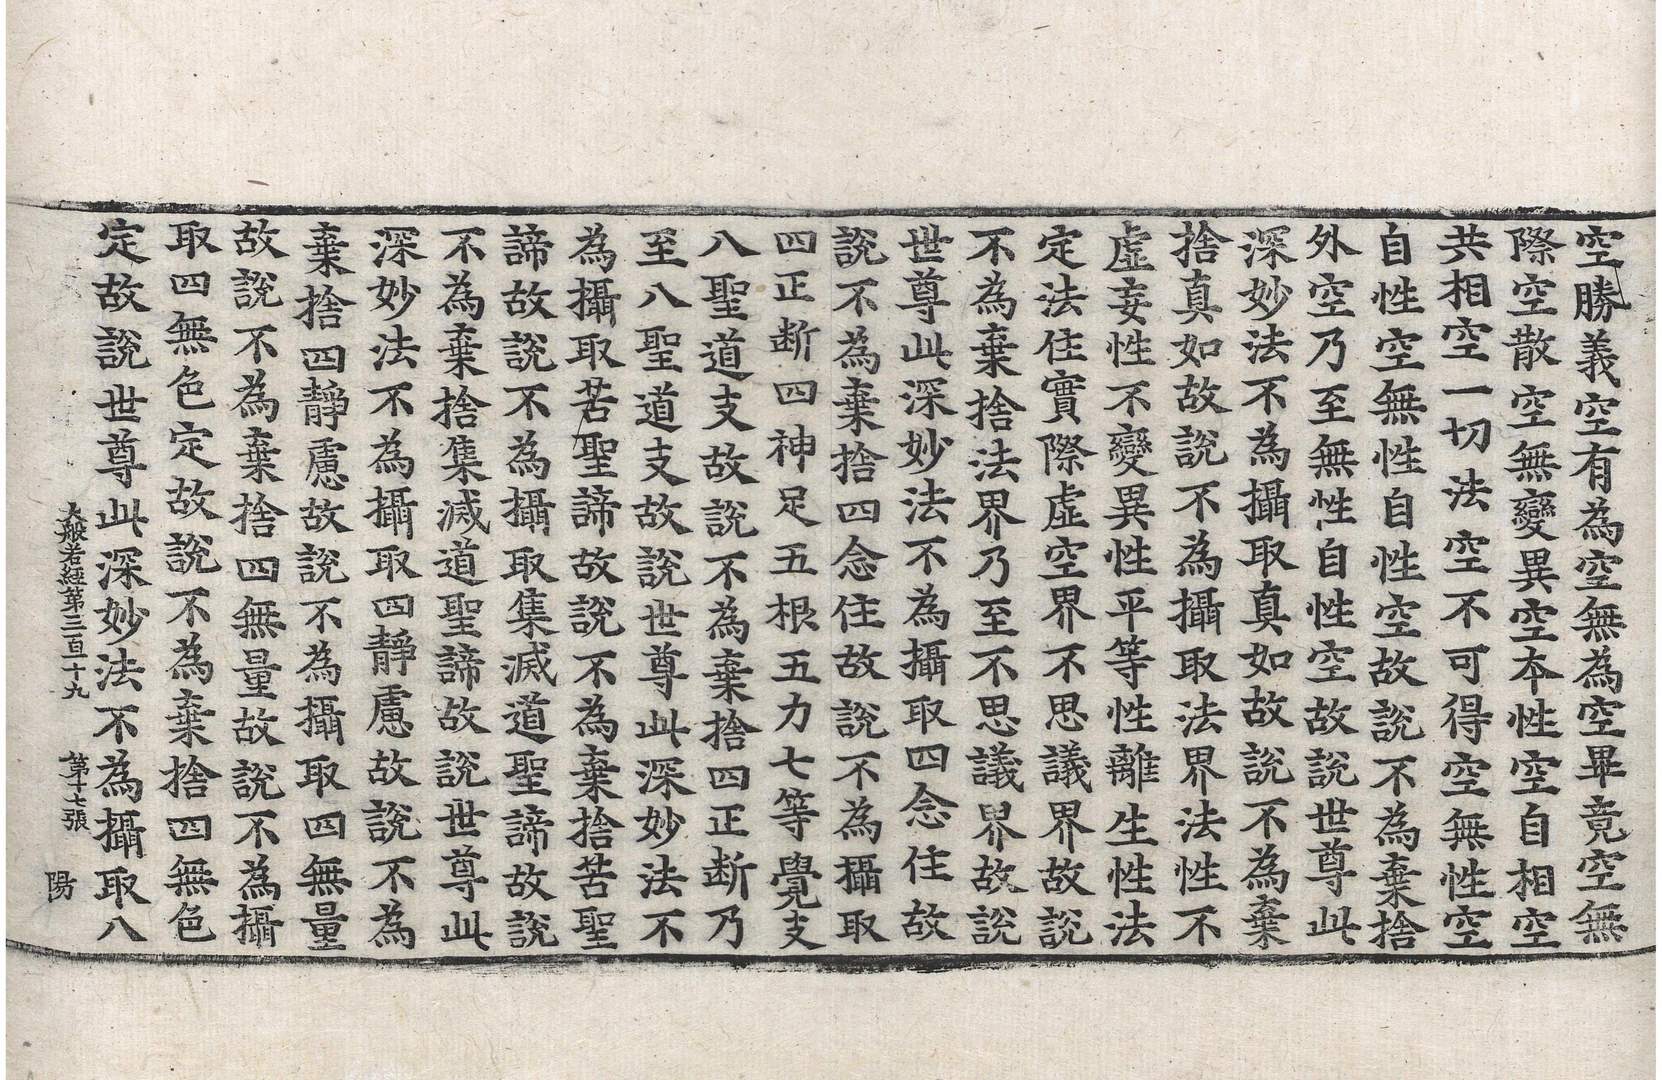 空勝義空有為空無為空畢竟空無
際空散空無變異空本性空自相空
共相空一切法空不可得空無性空
自性空無性自性空故說不為棄捨
外空乃至無性自性空故說世尊此
深妙法不為攝取真如故說不為棄
捨真如故說不為攝取法界法性不
虛妄性不變異性平等性離生性法
定法住實際虛空界不思議界故說
不為棄捨法界乃至不思議界故說
世尊此深妙法不為攝取四念住故
說不為棄捨四念住故說不為攝取
四正断四神足五根五力七等覺支
八聖道支故說不為棄捨四正断乃
至八聖道支故說世尊此深妙法不
為攝取苦聖諦故說不為棄捨苦聖
諦故說不為攝取集滅道聖諦故說
不為棄捨集滅道聖諦故說世尊此
深妙法不為攝取四靜慮故說不為
棄捨四靜慮故說不為攝取四無量
故說不為棄捨四無量故說不為攝
取四無色定故說不為棄捨四無色
定故說世尊此深妙法不為攝取八
大般若經第三百一十九 第十七張 陽